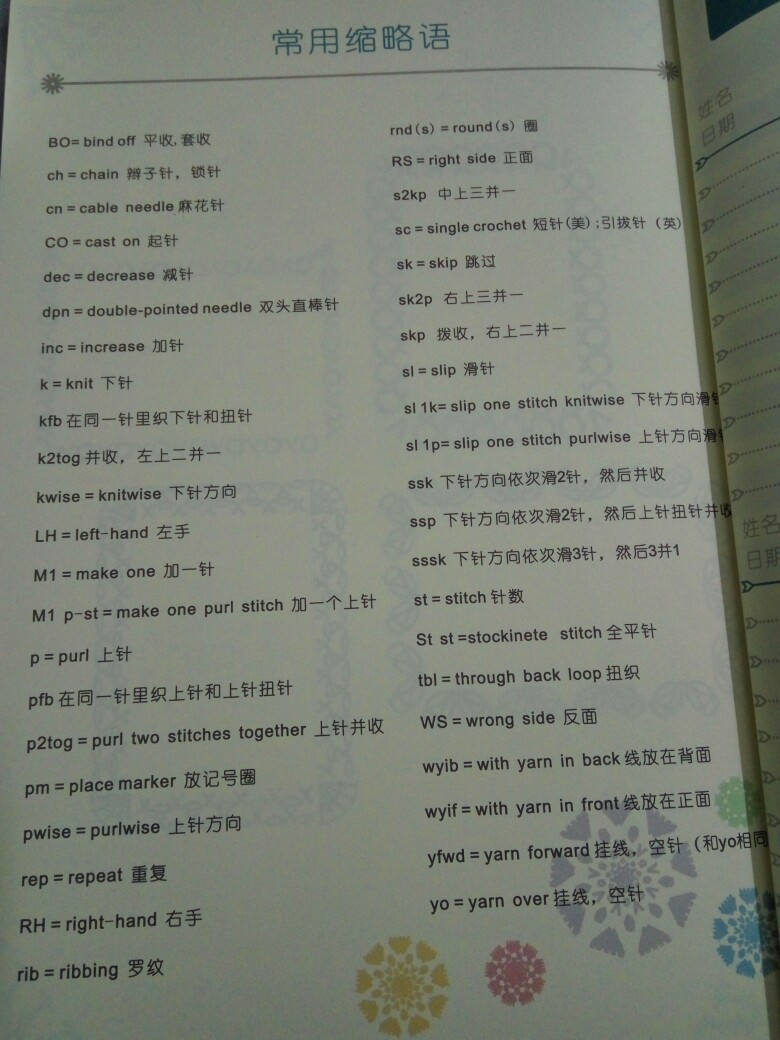 常用缩略语
BO= bind off 平收,套收
ch = chain 辫子针，锁针
cn = cable needle 麻花针
CO = cast on 起针
dec = decrease 减针
dpn = double-pointed needle 双头直棒针
inc = increase 加针
k = knit 下针
kfb 在同一针里织下针和扭针
k2tog 并收，左上二并一
kwise = knitwise 下针方向
LH = left-hand 左手
M1 = make one 加一针
M1 p-st = make one purl stitch 加一个上针
p = purl 上针
pfb 在同一针里织上针和上针扭针
p2tog = purl two stitches together 上针并收
pm = place marker 放记号圈
pwise = purlwise 上针方向
rep = repeat 重复
RH = right-hand 右手
rib = ribbing 罗纹
rnd(s) = round(s) 圈
RS = right side 正面
s2kp 中上三并一
sc = single crochet 短针(美);引拔针（英)
sk = skip 跳过
sk2p 右上三并一
skp 拨收，右上二并一
sl = slip 滑针
sl 1k= slip one stitch knitwise 下针方向滑
sl 1p= slip one stitch purlwise 上针方向滑
ssk 下针方向依次滑2针，然后并收
ssp 下针方向依次滑2针，然后上针扭针并收
sssk 下针方向依次滑3针，然后3并1
st = stitch 针数
St st =stockinete stitch 全平针
tbl = through back loop 扭织
WS = wrong side 反面
wyib = with yarn in back 线放在背面
wyif = with yarn in front 线放在正面
yfwd = yarn forward 挂线，空针（和yo相同
yo = yarn over 挂线，空针
姓名
日期
姓名
日期